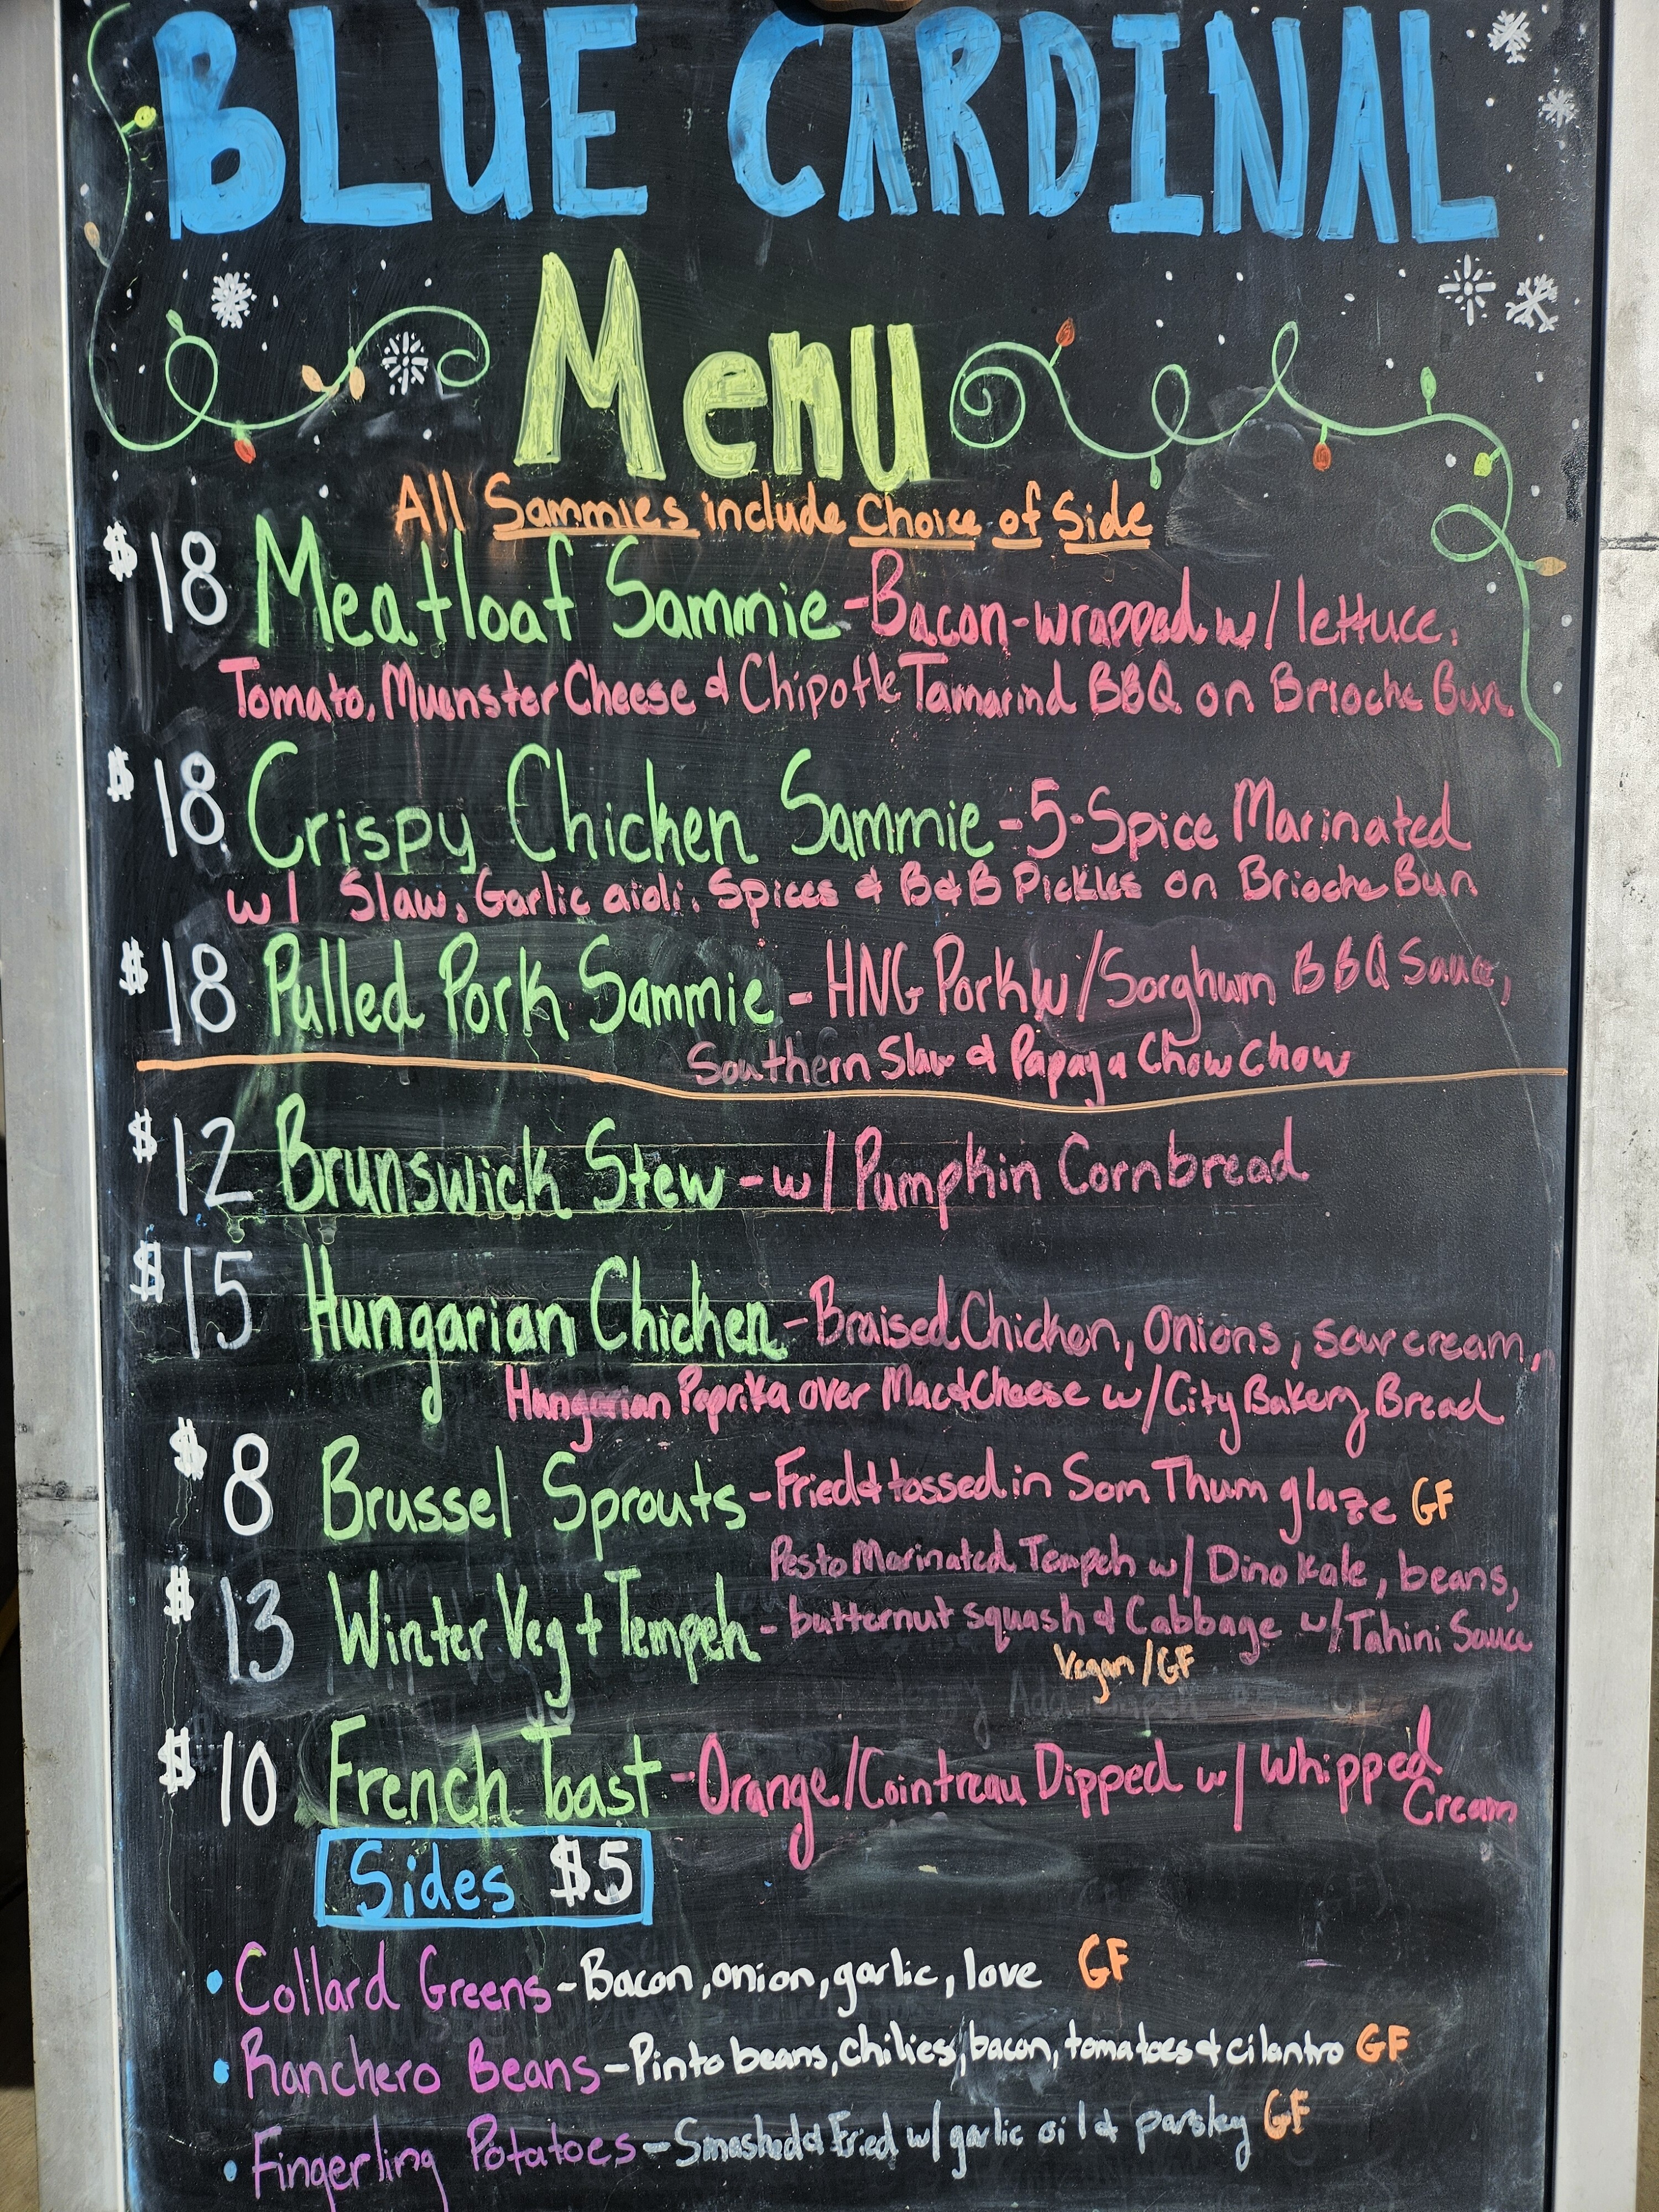 BLUE CARDINAL
Menu
All Sammies include Choice of Side
$18 Meatloaf Sammie - Bacon-wrapped w/ lettuce,
Tomato, Muenster Cheese & Chipotle Tamarind BBQ on Brioche Bun
$18 Crispy Chicken Sammie - 5-Spice Marinated
w/ Slaw, Garlic aioli, Spices & B&B Pickles on Brioche Bun
$18 Pulled Pork Sammie - HNG Pork w/ Sorghum BBQ Sauce,
Southern Slaw & Papaya Chow Chow
$12 Brunswick Stew - w/ Pumpkin Cornbread
$15 Hungarian Chicken - Braised Chicken, Onions, sour cream,
Hungarian Paprika over Mac&Cheese w/ City Bakery Bread
$8 Brussel Sprouts - Fried & tossed in Som Thum glaze GF
Pesto Marinated Tempeh w/ Dino Kale, beans,
$13 Winter Veg + Tempeh - butternut squash & Cabbage w/ Tahini Sauce
Vegan/GF
$10 French Toast - Orange/Cointreau Dipped w/ Whipped
Cream
Sides $5
• Collard Greens - Bacon, onion, garlic, love GF
• Ranchero Beans - Pinto beans, chilies, bacon, tomatoes & cilantro GF
• Fingerling Potatoes - Smashed & Fried w/ garlic oil & parsley GF